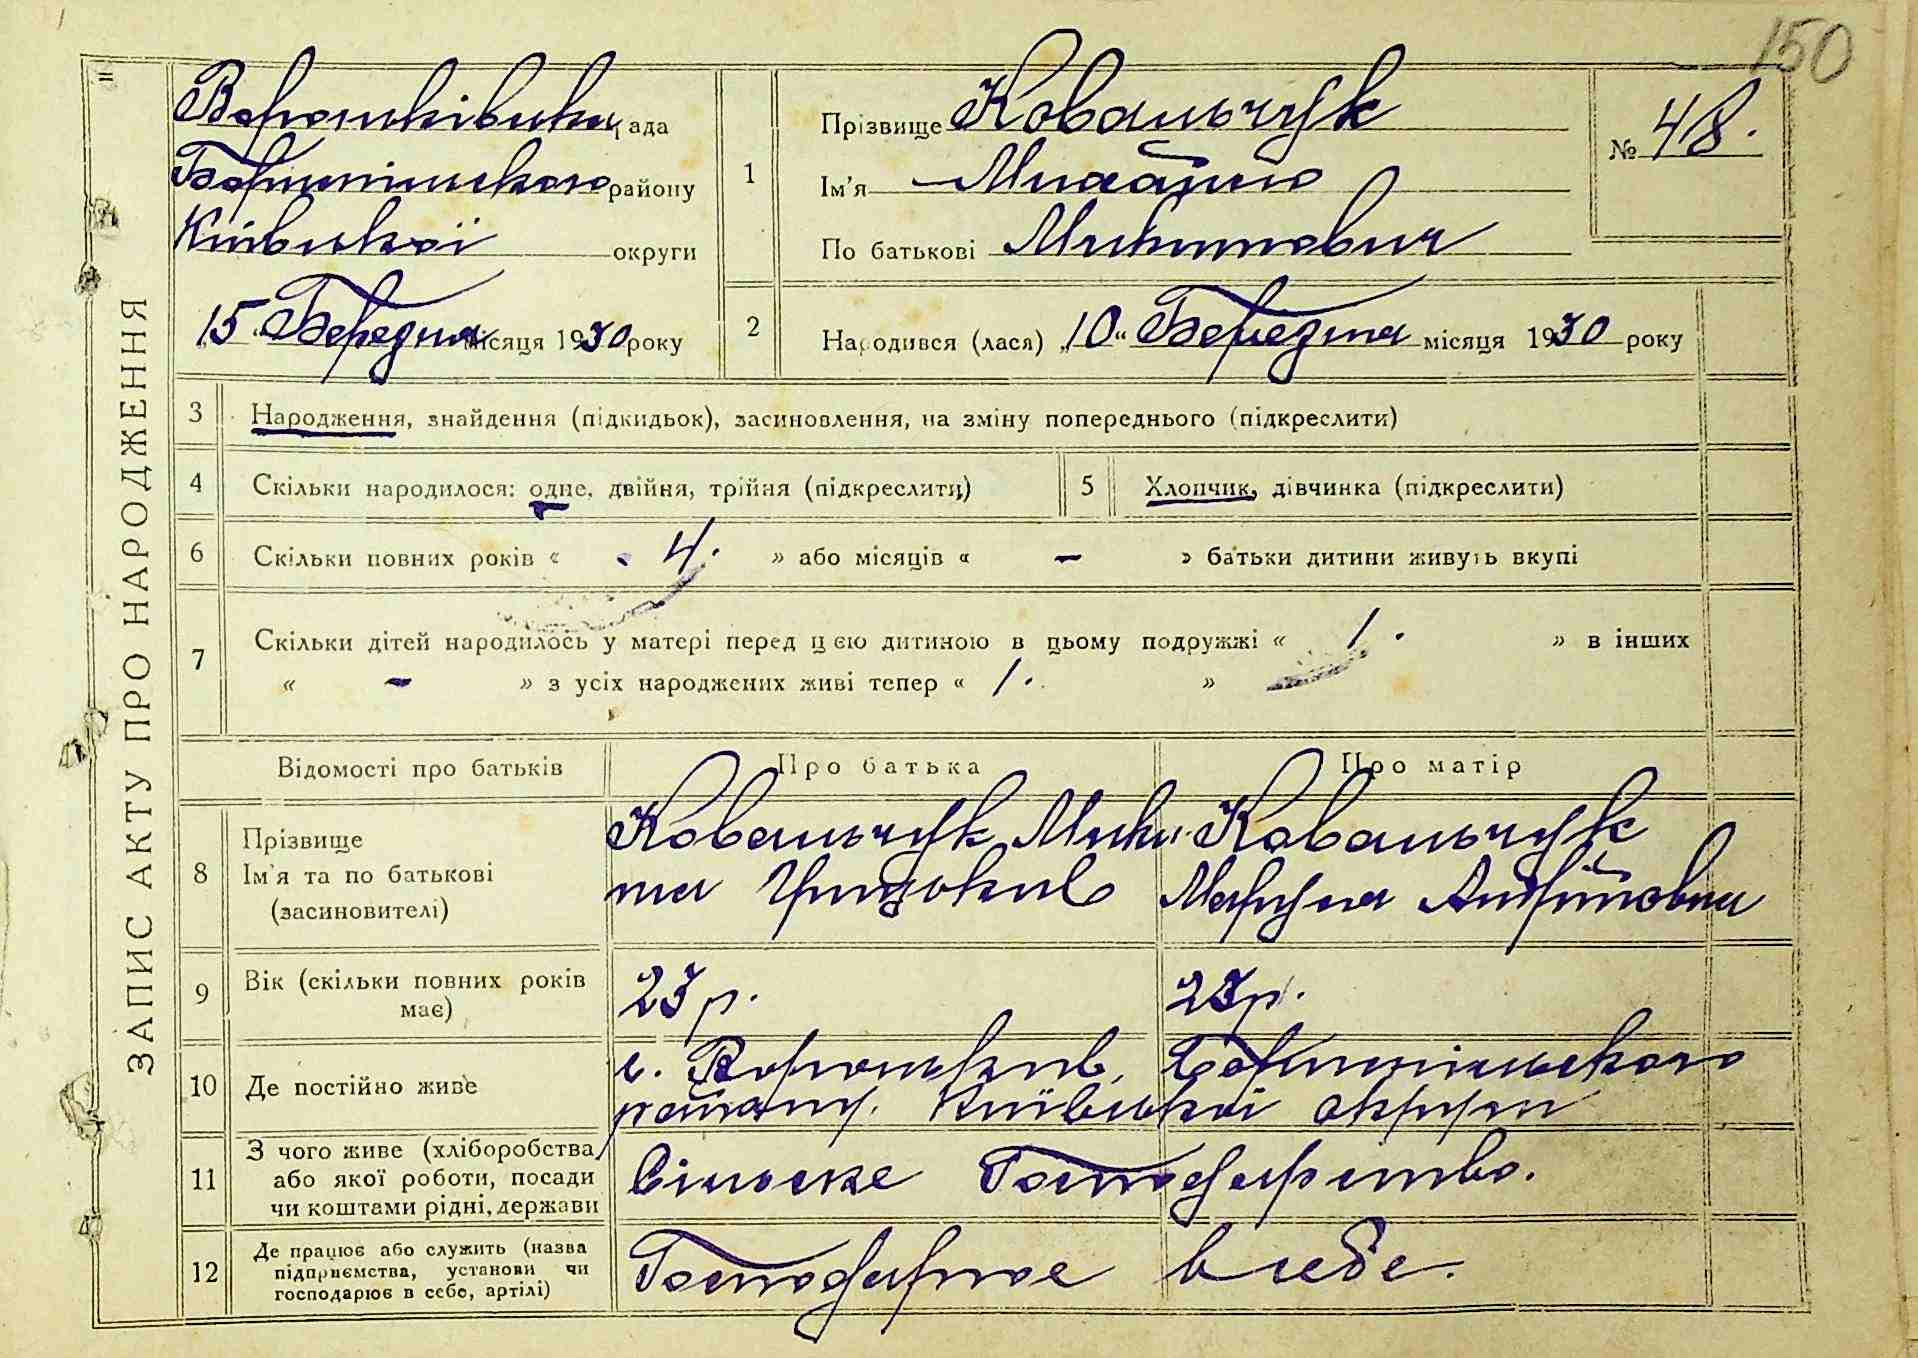 150
ЗАПИС АКТУ ПРО НАРОДЖЕННЯ
Вороньківська рада
Бориспільского району
Київської округи
„15“ Березня місяця 1930 року
1
Прізвище Ковальчук
Ім'я Михайло
По батькові Микитович
№ 48.
2
Народився (лася) „10“ Березня місяця 1930 року
3 Народження, знайдення (підкидьок), засиновлення, на зміну попереднього (підкреслити)
4 Скільки народилося: одне, двійня, трійня (підкреслити)
5 Хлопчик, дівчинка (підкреслити)
6 Скільки повних років « 4. » або місяців « – » батьки дитини живуть вкупі
7 Скільки дітей народилось у матері перед цєю дитиною в цьому подружжі « 1. » в інших
« – » з усіх народжених живі тепер « 1. »
Відомості про батьків Про батька Про матір
8 Прізвище
Ім'я та по батькові
(засиновителі)
Ковальчук Мики
та Грицьків
Ковальчук
Маруся Андріївна
9 Вік (скільки повних років
має)
23 р. 23 р.
10 Де постійно живе
с. Вороньків, Бориспільского
району. Київської округи
11 З чого живе (хліборобства,
або якої роботи, посади
чи коштами рідні, держави
Сільске Господарство.
12 Де працює або служить (назва
підприємства, установи чи
господарює в себе, артілі)
Господарює в себе.